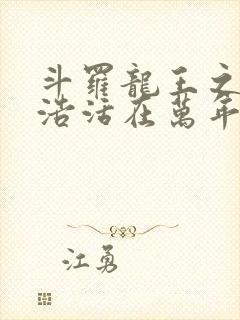 斗羅龍王之
浩活在萬年
江勇